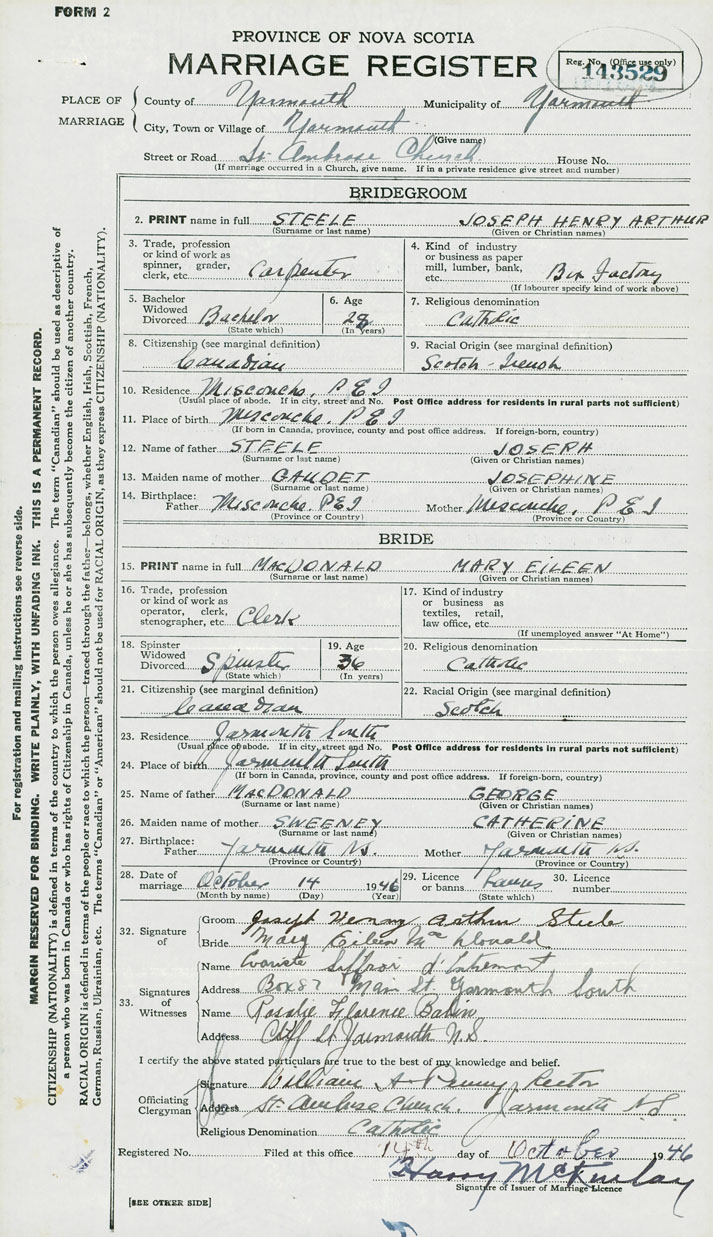 FORM 2
PROVINCE OF NOVA SCOTIA
MARRIAGE REGISTER
Reg. No. (Office use only)
143529
PLACE OF MARRIAGE
County of Yarmouth Municipality of Yarmouth
City, Town or Village of Yarmouth
(Give name)
Street or Road St. Ambrose Church House No.
(If marriage occurred in a Church, give name. If in a private residence give street and number)
BRIDEGROOM
2. PRINT name in full STEELE JOSEPH HENRY ARTHUR
(Surname or last name) (Given or Christian names)
3. Trade, profession or kind of work as spinner, grader, clerk, etc. Carpenter
4. Kind of industry or business as paper mill, lumber, bank, etc. Box Factory
(If labourer specify kind of work above)
5. Bachelor Widowed Divorced Bachelor
(State which)
6. Age 28
(In years)
7. Religious denomination
Catholic
8. Citizenship (see marginal definition)
Canadian
9. Racial Origin (see marginal definition)
Scotch-French
10. Residence Misconche, P E I
(Usual place of abode. If in city, street and No. Post Office address for residents in rural parts not sufficient)
11. Place of birth Misconche, P E I
(If born in Canada, province, county and post office address. If foreign-born, country)
12. Name of father STEELE JOSEPH
(Surname or last name) (Given or Christian names)
13. Maiden name of mother GAUDET JOSEPHINE
(Surname or last name) (Given or Christian names)
14. Birthplace: Father Misconche, P E I Mother Misconche, P E I
(Province or Country) (Province or Country)
BRIDE
15. PRINT name in full MACDONALD MARY EILEEN
(Surname or last name) (Given or Christian names)
16. Trade, profession or kind of work as operator, clerk, stenographer, etc. Clerk
17. Kind of industry or business as textiles, retail, law office, etc.
(If unemployed answer "At Home")
18. Spinster Widowed Divorced Spinster
(State which)
19. Age 36
(In years)
20. Religious denomination
Catholic
21. Citizenship (see marginal definition)
Canadian
22. Racial Origin (see marginal definition)
Scotch
23. Residence Yarmouth South
(Usual place of abode. If in city, street and No. Post Office address for residents in rural parts not sufficient)
24. Place of birth Yarmouth South
(If born in Canada, province, county and post office address. If foreign-born, country)
25. Name of father MACDONALD GEORGE
(Surname or last name) (Given or Christian names)
26. Maiden name of mother SWEENEY CATHERINE
(Surname or last name) (Given or Christian names)
27. Birthplace: Father Yarmouth N.S. Mother Yarmouth N.S.
(Province or Country) (Province or Country)
28. Date of marriage October 14 1946
(Month by name) (Day) (Year)
29. Licence or banns banns
(State which)
30. Licence number
32. Signature of
Groom Joseph Henry Arthur Steele
Bride Mary Eileen MacDonald
33. Signatures of Witnesses
Name Evariste d'Entremont
Address Box 87 Main St. Yarmouth South
Name Rosalie Florence Babin
Address Cliff St. Yarmouth N.S.
I certify the above stated particulars are true to the best of my knowledge and belief.
Officiating Clergyman
Signature William A Penny Rector
Address St. Ambrose Church, Yarmouth N.S.
Religious Denomination Catholic
Registered No. Filed at this office 14th day of October 1946
Harry McKinlay
Signature of Issuer of Marriage Licence
[SEE OTHER SIDE]
For registration and mailing instructions see reverse side.
MARGIN RESERVED FOR BINDING. WRITE PLAINLY, WITH UNFADING INK. THIS IS A PERMANENT RECORD.
CITIZENSHIP (NATIONALITY) is defined in terms of the country to which the person owes allegiance. The term "Canadian" should be used as descriptive of
a person who was born in Canada or who has rights of Citizenship in Canada, unless he or she has subsequently become the citizen of another country.
RACIAL ORIGIN is defined in terms of the people or race to which the person—traced through the father—belongs, whether English, Irish, Scottish, French,
German, Russian, Ukrainian, etc. The terms "Canadian" or "American" should not be used for RACIAL ORIGIN, as they express CITIZENSHIP (NATIONALITY).